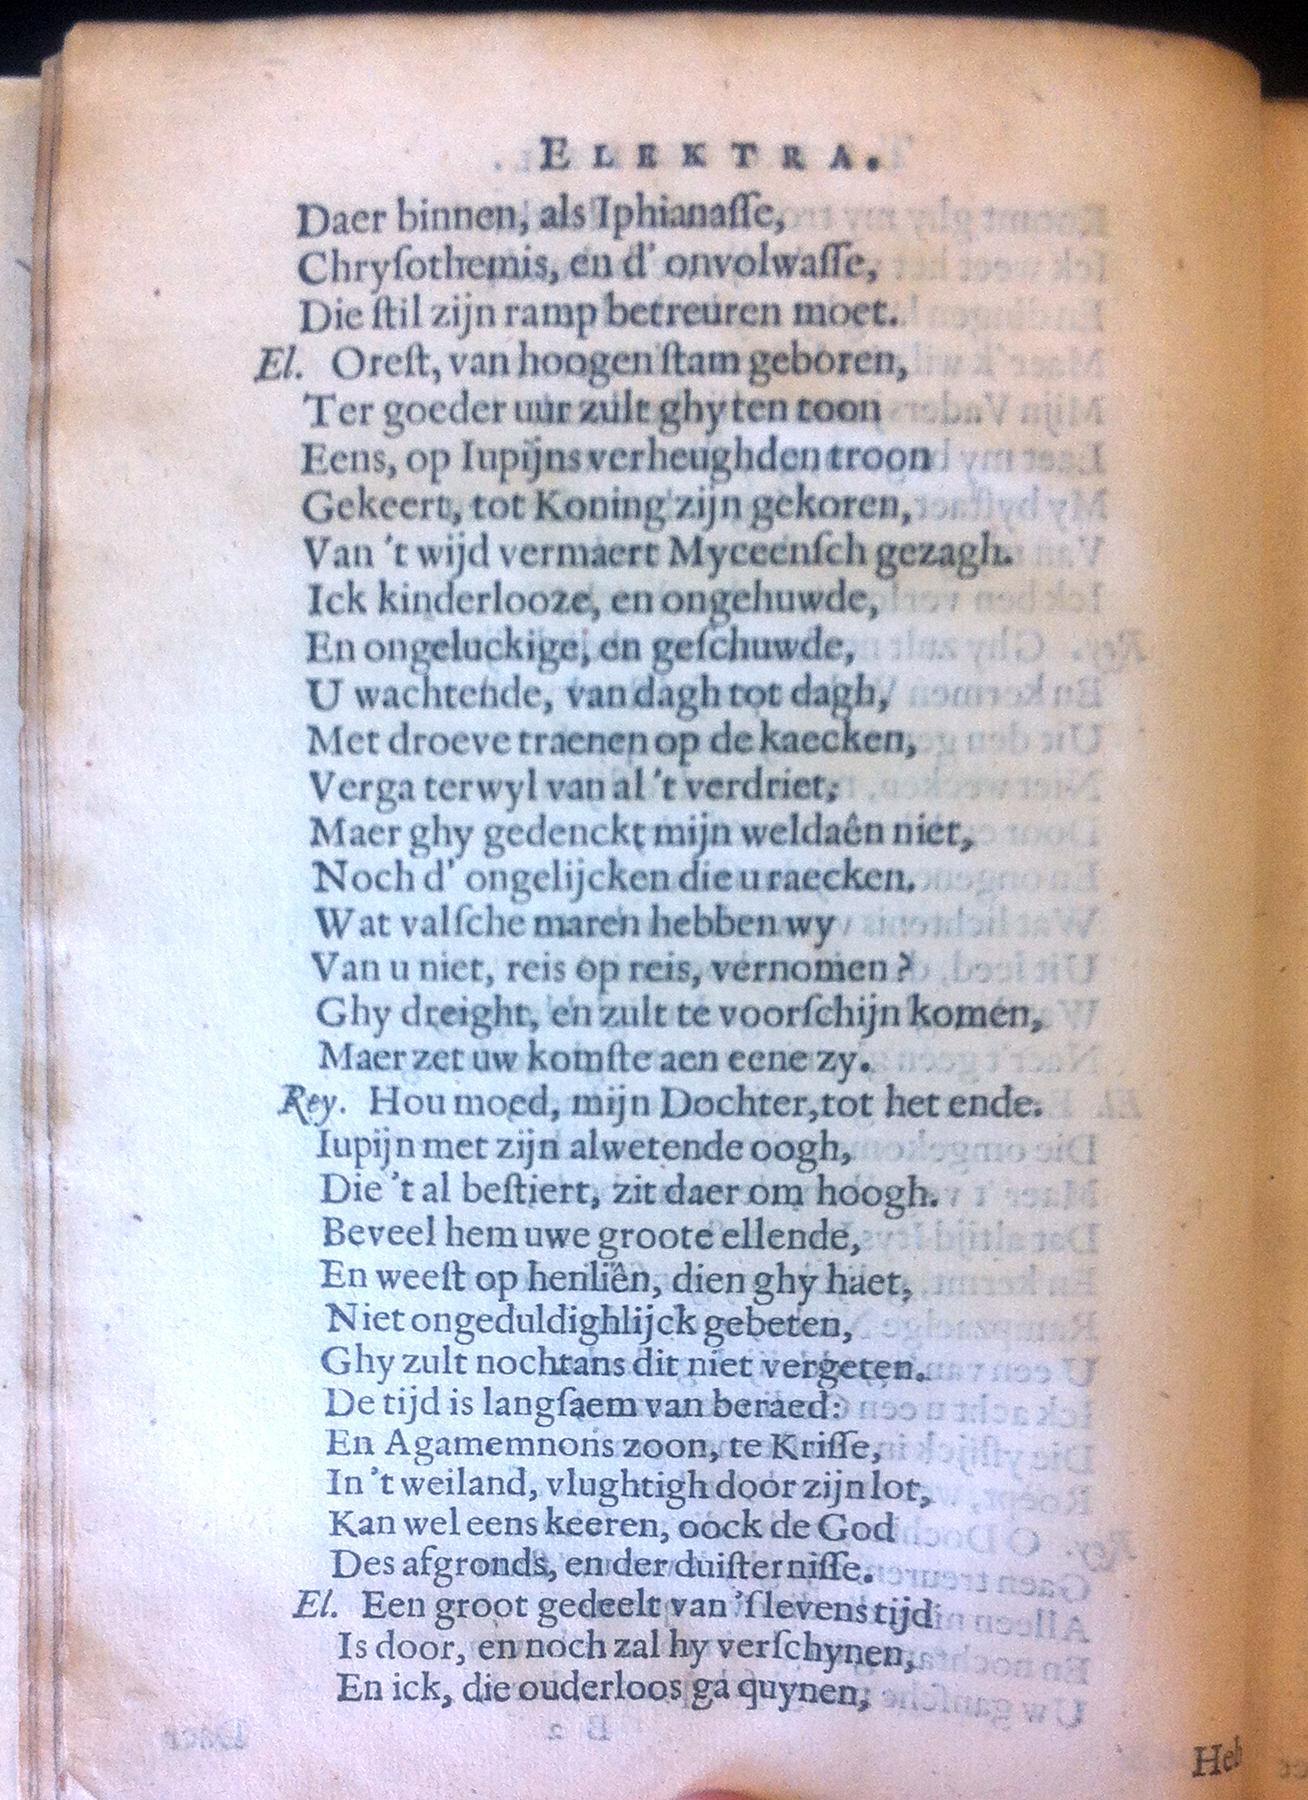 ELEKTRA.
Daer binnen, als Iphianaſſe,
Chryſothemis, en d' onvolwaſſe,
Die ſtil zijn ramp betreuren moet.
El. Oreſt, van hoogen ſtam geboren,
Ter goeder uur zult ghy ten toon
Eens, op Iupijns verheughden troon
Gekeert, tot Koning zijn gekoren,
Van 't wijd vermaert Myceenſch gezagh.
Ick kinderlooze, en ongehuwde,
En ongeluckige, en geſchuwde,
U wachtende, van dagh tot dagh,
Met droeve traenen op de kaecken,
Verga terwyl van al 't verdriet;
Maer ghy gedenckt mijn weldaên niet,
Noch d' ongelijcken die u raecken.
Wat valſche maren hebben wy
Van u niet, reis op reis, vernomen?
Ghy dreight, en zult te voorſchijn komen,
Maer zet uw komſte aen eene zy.
Rey. Hou moed, mijn Dochter, tot het ende.
Iupijn met zijn alwetende oogh,
Die 't al beſtiert, zit daer om hoogh.
Beveel hem uwe groote ellende,
En weeſt op henliên, dien ghy haet,
Niet ongeduldighlijck gebeten,
Ghy zult nochtans dit niet vergeten.
De tijd is langſaem van beraed:
En Agamemnons zoon, te Kriſſe,
In 't weiland, vlughtigh door zijn lot,
Kan wel eens keeren, oock de God
Des afgronds, en der duiſterniſſe.
El. Een groot gedeelt van 'ſ levens tijd
Is door, en noch zal hy verſchynen,
En ick, die ouderloos ga quynen,
Heb